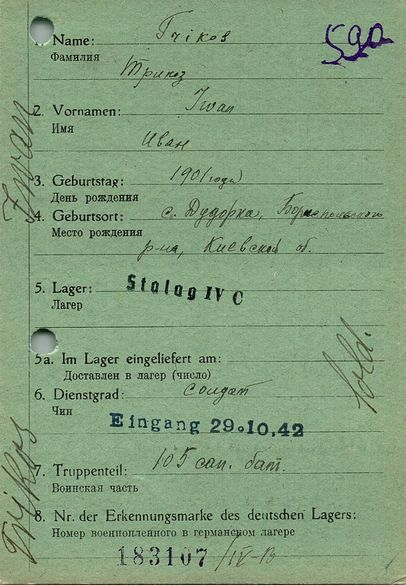 59a
1. Name: Trikos
Фамилия
Трикоз
2. Vornamen: Iwan
Имя
Иван
3. Geburtstag: 1901 года
День рождения
4. Geburtsort: с. Дударка, Бориспольского
Место рождения
р-на, Киевской об.
5. Lager: Stalag IV C
Лагер
5a. Im Lager eingeliefert am:
Доставлен в лагер (число)
6. Dienstgrad: солдат
Чин
Eingang 29.10.42
7. Truppenteil: 105 сап. бат.
Воинская часть
8. Nr. der Erkennungsmarke des deutschen Lagers:
Номер военнопленного в германском лагере
183107 /IV-B
Iwan
Trikos
Sold.